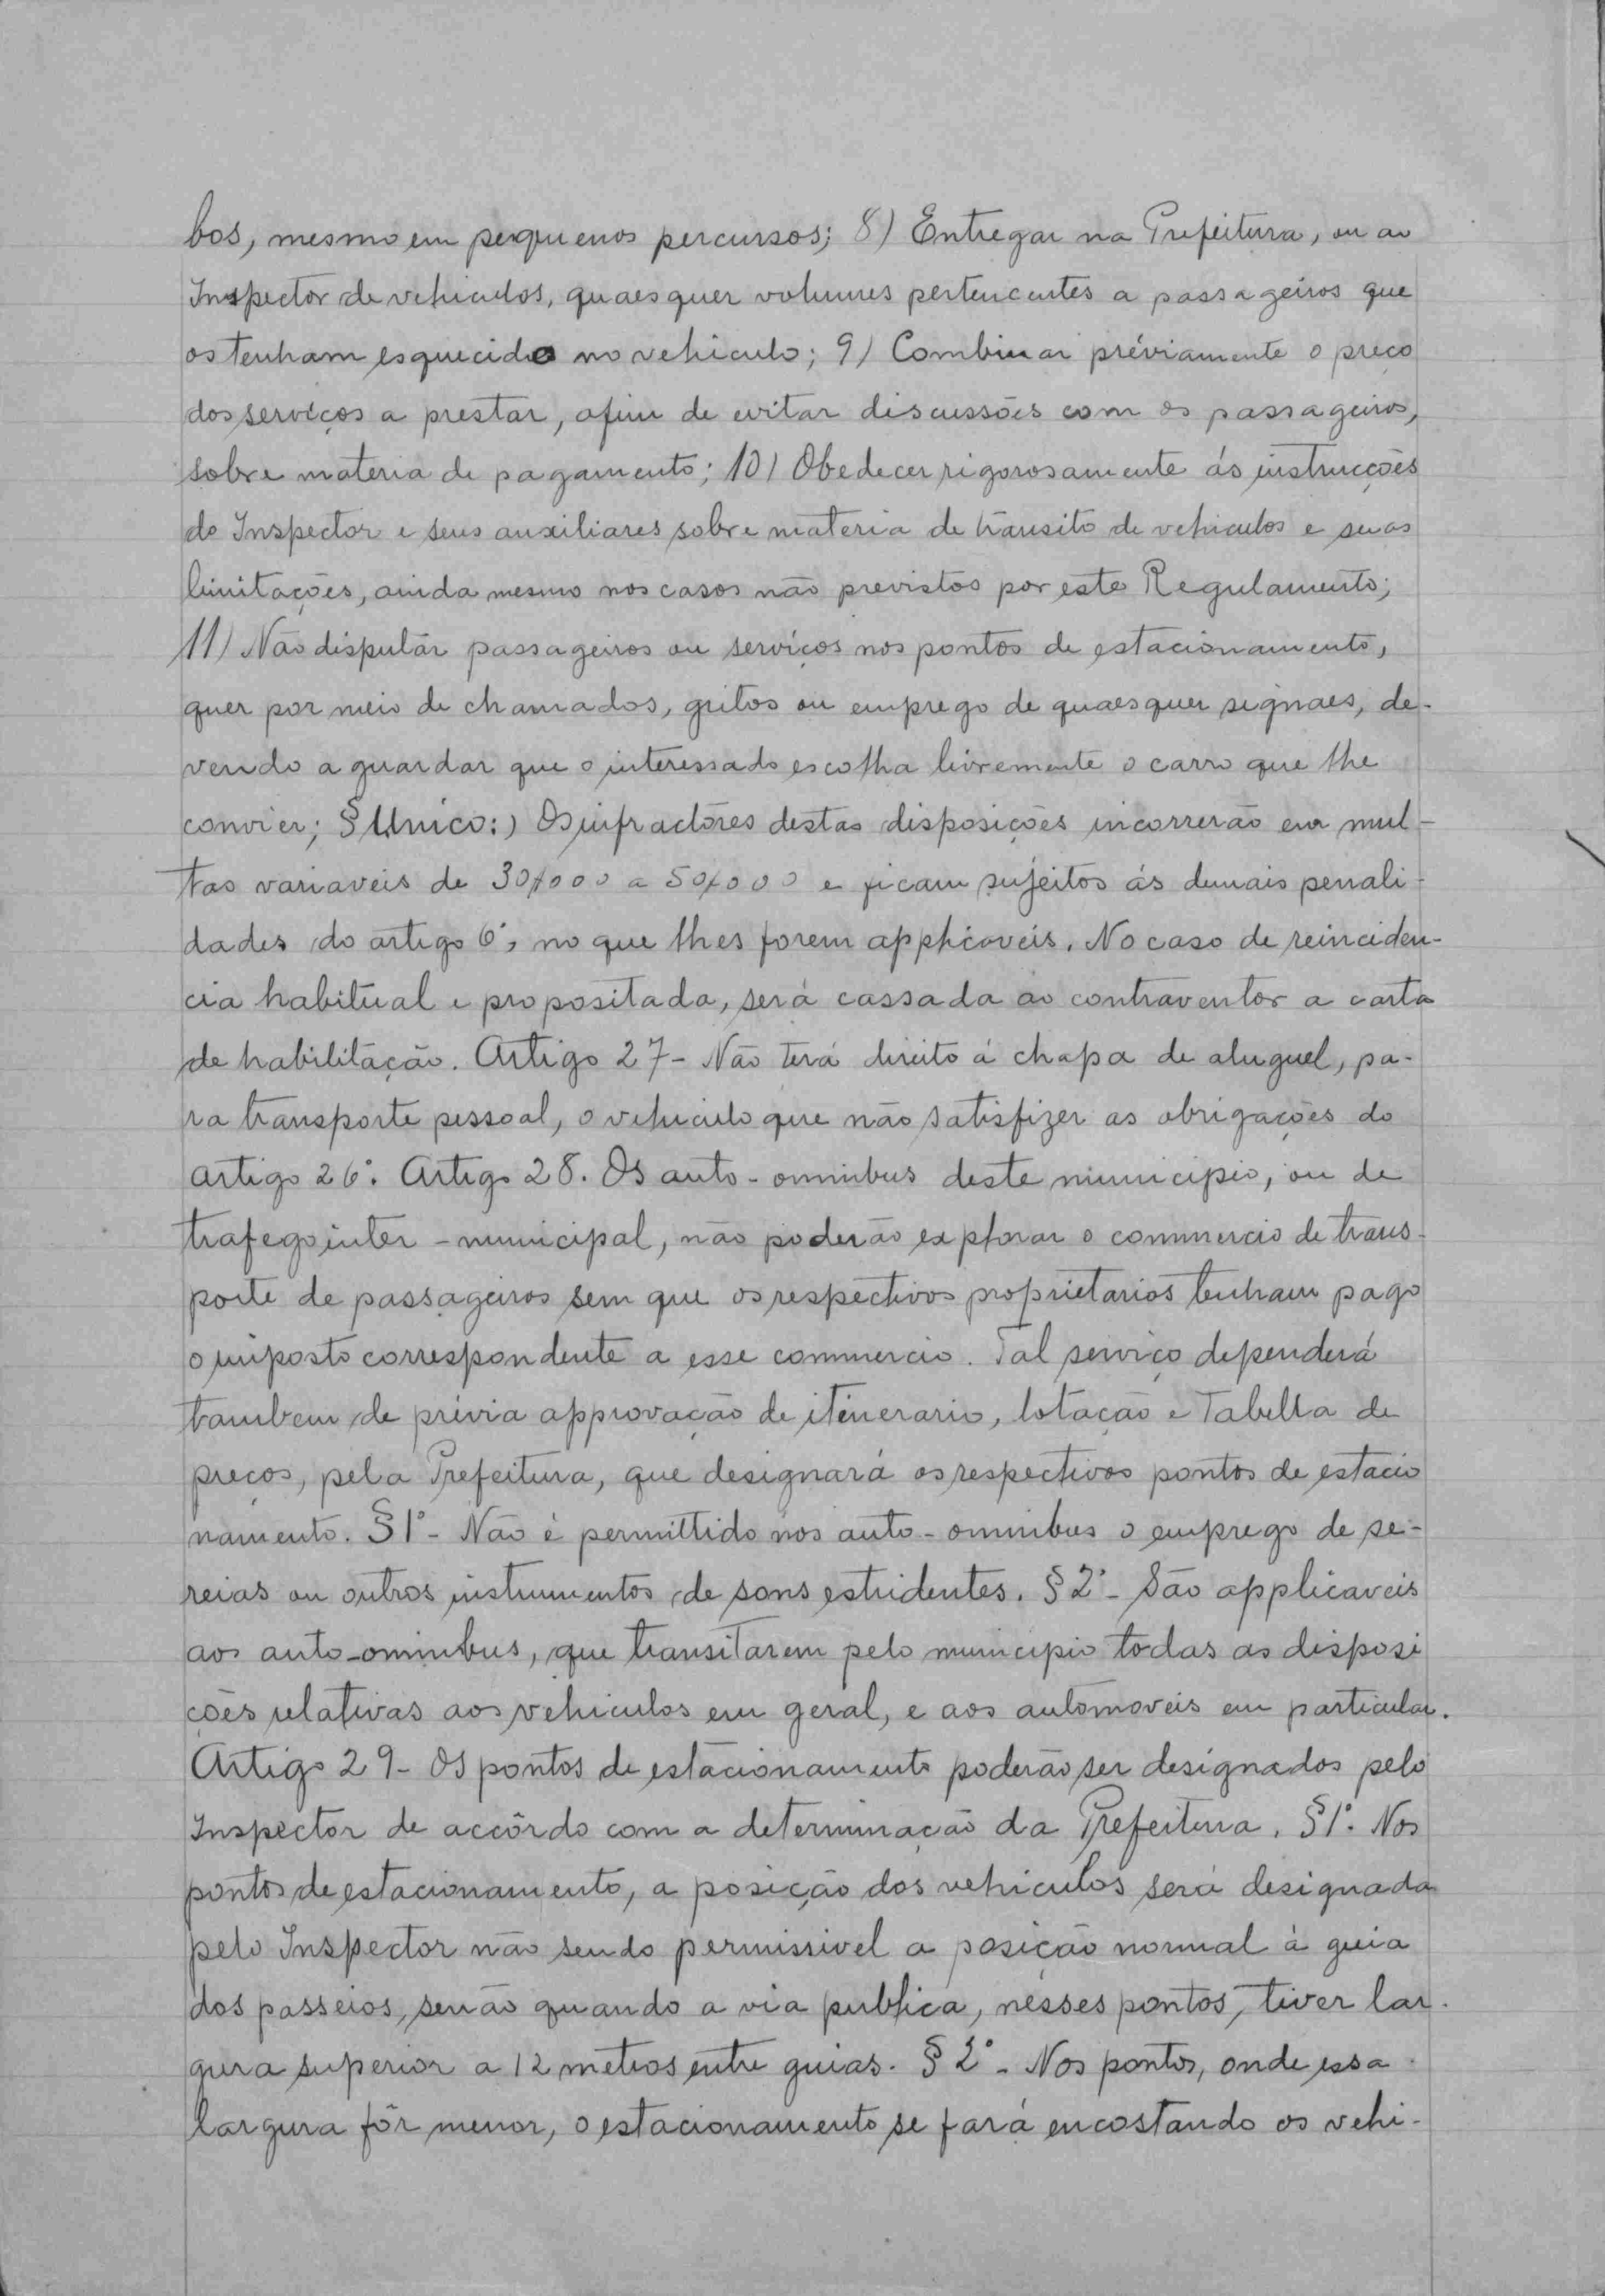 bos, mesmo em pequenos percursos; 8) Entregar na Prefeitura, ou ao
Inspector de vehiculos, quaesquer volumes pertencentes a passageiros que
os tenham esquecido no vehiculo; 9) Combinar préviamente o preço
dos serviços a prestar, afim de evitar discussões com os passageiros,
sobre materia de pagamento; 10) Obedecer rigorosamente ás instrucções
do Inspector e seus auxiliares sobre materia de transito de vehiculos e suas
limitações, ainda mesmo nos casos não previstos por este Regulamento;
11) Não disputar passageiros ou serviços nos pontos de estacionamento,
quer por meio de chamados, gritos ou emprego de quaesquer signaes, de-
vendo aguardar que o interessado escolha livremente o carro que lhe
convier; § Unico:) Os infractores destas disposições incorrerão em mul-
tas variaveis de 30$000 a 50$000 e ficam sujeitos ás demais penali-
dades do artigo 6°, no que lhes forem applicaveis. No caso de reinciden-
cia habitual e propositada, será cassada ao contraventor a carta
de habilitação. Artigo 27- Não terá direito á chapa de aluguel, pa-
ra transporte pessoal, o vehiculo que não satisfizer as obrigações do
artigo 26°. Artigo 28. Os auto-omnibus deste municipio, ou de
trafego inter-municipal, não poderão explorar o commercio de trans-
porte de passageiros sem que os respectivos proprietarios tenham pago
o imposto correspondente a esse commercio. Tal serviço dependerá
tambem de prévia approvação de itinerario, lotação e Tabella de
preços, pela Prefeitura, que designará os respectivos pontos de estacio
namento. §1°- Não é permittido nos auto-omnibus o emprego de se-
reias ou outros instrumentos de sons estridentes. §2°- São applicaveis
aos auto-omnibus, que transitarem pelo municipio todas as disposi
ções relativas aos vehiculos em geral, e aos automoveis em particular.
Artigo 29- Os pontos de estacionamento poderão ser designados pelo
Inspector de accôrdo com a determinação da Prefeitura. §1°. Nos
pontos de estacionamento, a posição dos vehiculos será designada
pelo Inspector não sendo permissivel a posição normal á guia
dos passeios, senão quando a via publica, nesses pontos, tiver lar-
gura superior a 12 metros entre guias. §2°- Nos pontos, onde essa
largura fôr menor, o estacionamento se fará encostando os vehi-